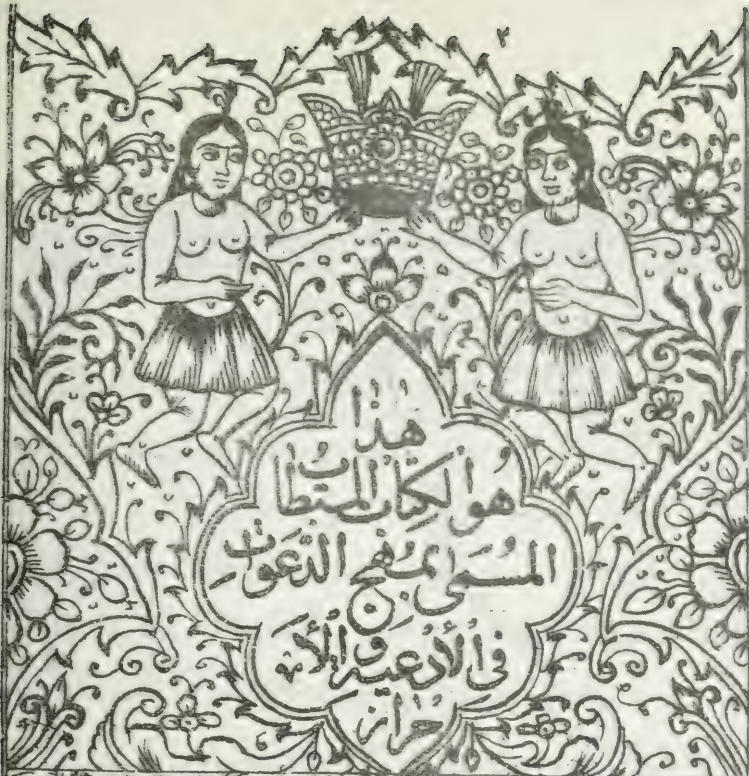 ٢
هذا
هو الكتاب المستطاب
المسمى بمهج الدعوات
في الأدعية والأ
حراز